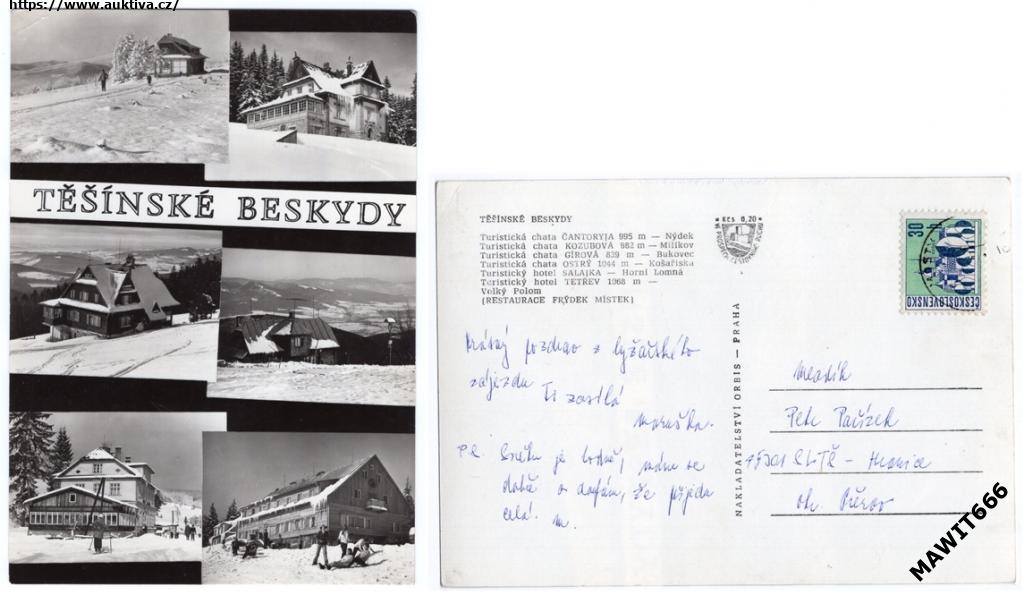 https://www.auktiva.cz/
TĚŠÍNSKÉ BESKYDY
TĚŠÍNSKÉ BESKYDY
Turistická chata ČANTORYJA 995 m — Nýdek
Turistická chata KOZUBOVÁ 982 m — Milíkov
Turistická chata GÍROVÁ 839 m — Bukovec
Turistická chata OSTRÝ 1044 m — Košařiska
Turistický hotel SALAJKA — Horní Lomná
Turistický hotel TETŘEV 1068 m —
Velký Polom
(RESTAURACE FRÝDEK MÍSTEK)
Kčs 0,20
30
ČESKOSLOVENSKO
NAKLADATELSTVÍ ORBIS — PRAHA
Krásný pozdrav z lyžařského
zájezdu Ti zasílá
Maruška.
P.S. Sněhu je hodně, mám se
dobře a doufám, že přijedu
celá. M.
Mladík
Petr Pařízek
75301 SLTŠ — Hranice
okr. Přerov
MAWIT666